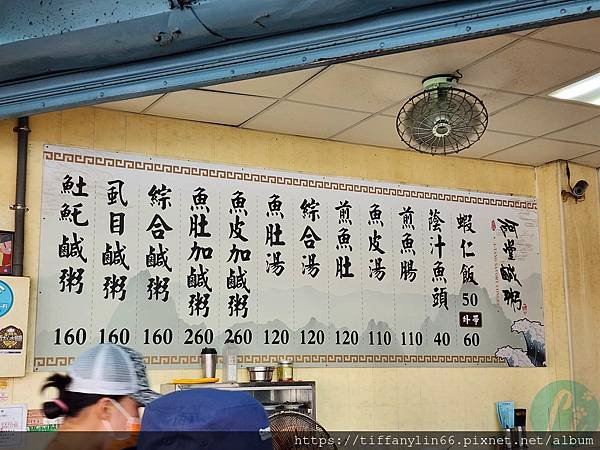 阿堂鹹粥
蝦仁飯 50
外帶 60
蔭汁魚頭 40
煎魚腸 110
魚皮湯 110
煎魚肚 120
綜合湯 120
魚肚湯 120
魚皮加鹹粥 260
魚肚加鹹粥 260
綜合鹹粥 160
虱目鹹粥 160
𩵚魠鹹粥 160
https://tiffanylin66.pixnet.net/album